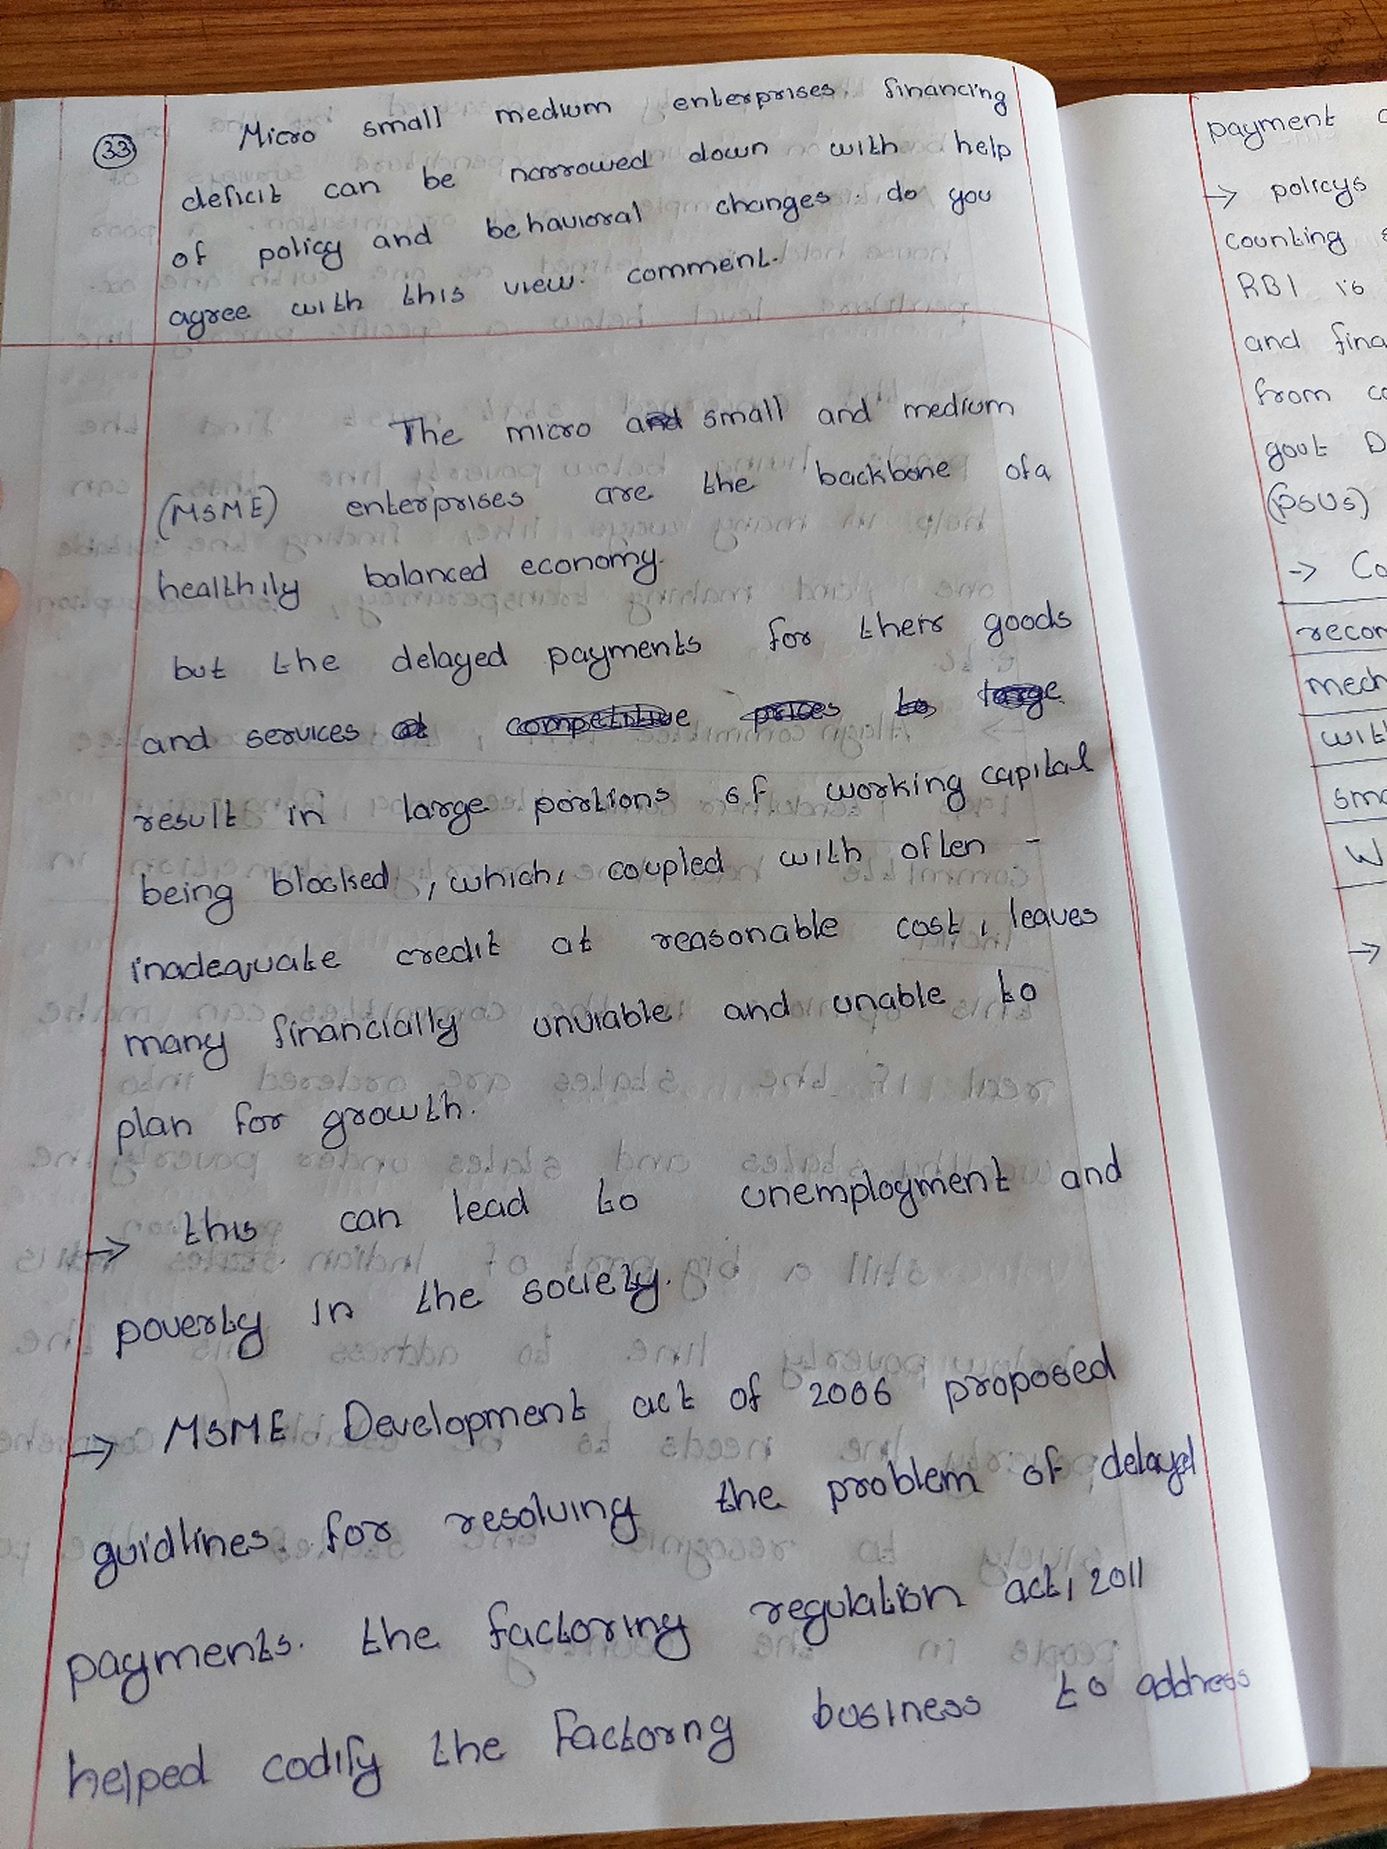 33 Micro small medium enterprises financing
deficit can be narrowed down with help
of policy and behavioral changes. do you
agree with this view. comment.
The micro and small and medium
(MSME) enterprises are the backbone of a
healthily balanced economy.
but the delayed payments for their goods
and services at competitive prices to large
result in large portions of working capital
being blocked, which, coupled with often -
inadequate credit at reasonable cost, leaves
many financially unviable and unable to
plan for growth.
→ this can lead to unemployment and
poverty in the society.
→ MSME Development act of 2006 proposed
guidlines for resolving the problem of delayed
payments. the factoring regulation act, 2011
helped codify the factorng business to address
payment
→ policys
counting
RBI is
and fina
from co
govt D
(PSUs)
→ Co
recom
mech
with
sma
W
→